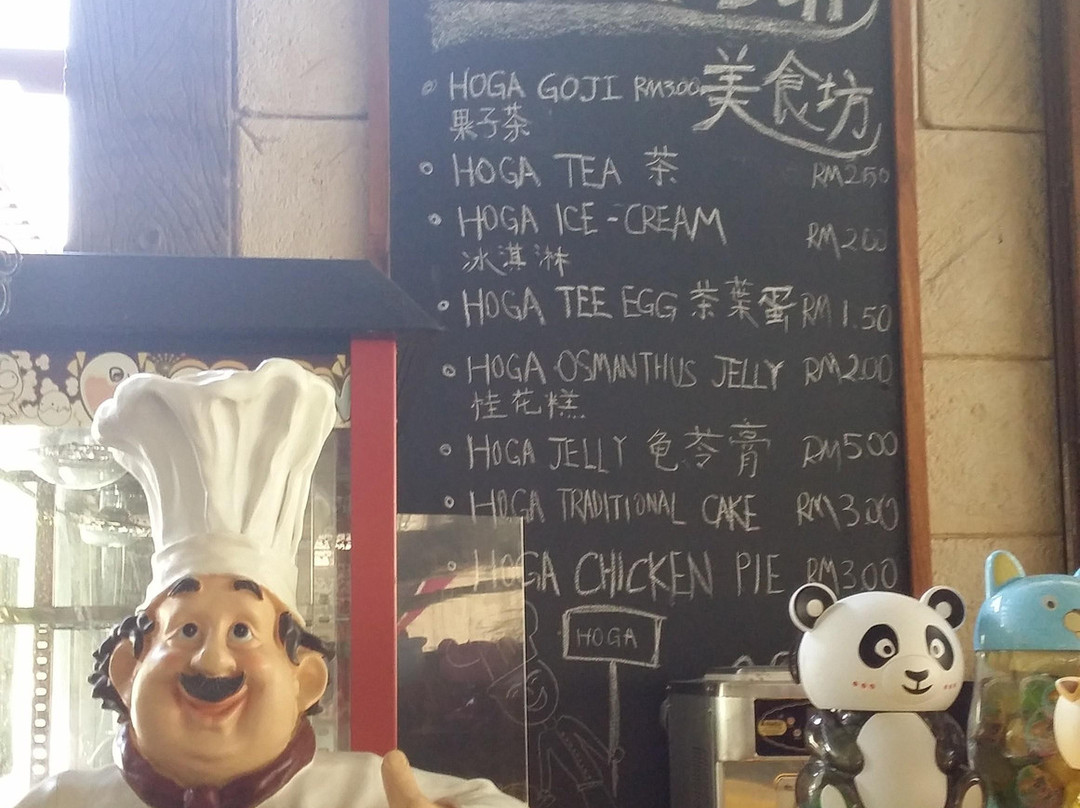 美食坊
HOGA GOJI RM3.00
果子茶
HOGA TEA 茶 RM2.50
HOGA ICE-CREAM RM2.00
冰淇淋
HOGA TEE EGG 茶葉蛋 RM1.50
HOGA OSMANTHUS JELLY RM2.00
桂花糕
HOGA JELLY 龟苓膏 RM5.00
HOGA TRADITIONAL CAKE RM3.00
HOGA CHICKEN PIE RM3.00
HOGA